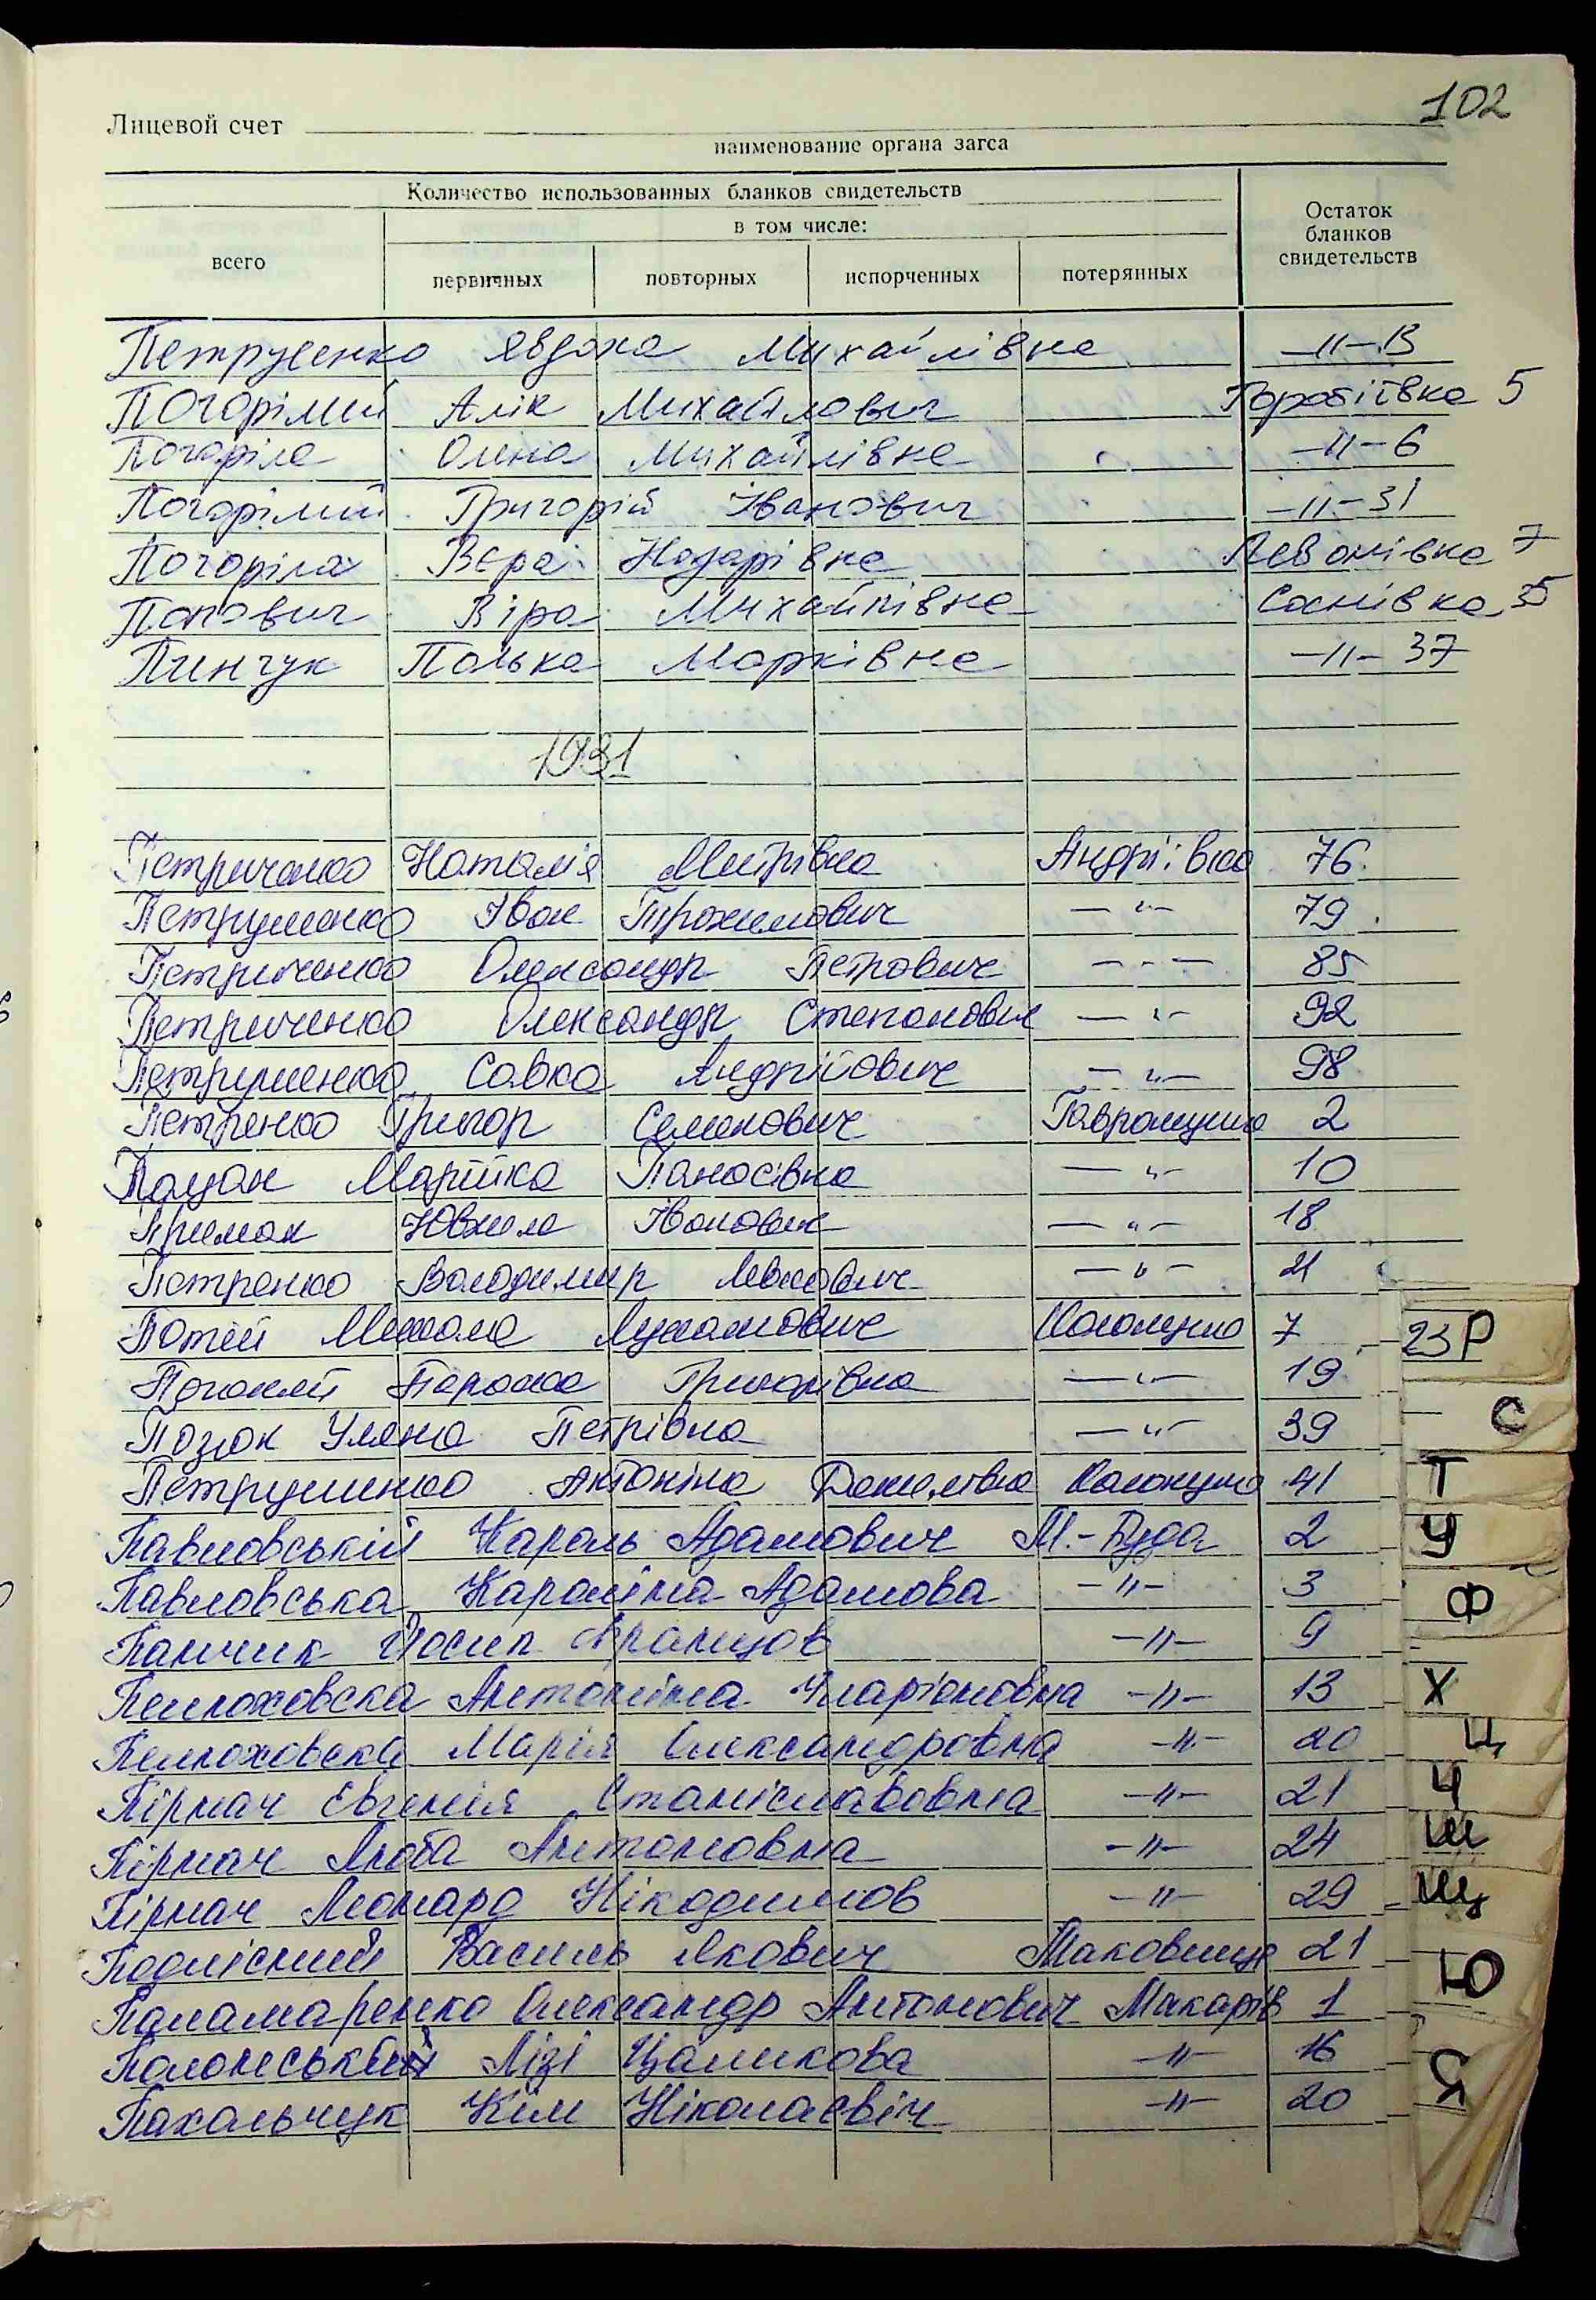 102
Лицевой счет
наименование органа загса
Количество использованных бланков свидетельств
в том числе:
всего первичных повторных испорченных потерянных Остаток бланков свидетельств
Петрусенко Явдоха Михайлівна -"- 13
Погорілий Алік Михайлович Горобіївка 5
Погоріла Олена Михайлівна -"- 6
Погорілий Григорій Іванович -"- 31
Погоріла Вєра Назарівна Левонівка 7
Попович Віра Михайлівна Соснівка 35
Пинчук Палька Марківна -"- 37
1931
Петриченко Наталія Митрівна Андріівка 76
Петрушенко Іван Трохимович -"- 79
Петриченко Олександр Петрович - - - 85
Петриченко Олександр Степанович -"- 92
Петрушенко Савка Андрійович -"- 98
Петренко Григор Семенович Гавронщина 2
Пацан Марійка Панасівна -"- 10
Примак Юхим Іванович -"- 18
Петренко Володимир Левкович -"- 21
Потій Микола Лукамович Колонщина 7
Параска Григорівна -"- 19
Позюк Уляна Петрівна -"- 39
Петрушенко Антоніна Данилівна Колонщина 41
Павловській Кароль Адамович М.-Буда 2
Павловська Кароліна Адамова -"- 3
Панчик Йосип Францов -"- 9
Пелюховска Антоніна Іларіоновна -"- 13
Пелюховска Марія Олександровна -"- 20
Пірнач Євгенія Станіславовна -"- 21
Пірнач Люба Антоновна -"- 24
Пірнач Леонард Нікодимов -"- 29
Подлісний Василь Якович Маковище 21
Паламаренко Олександр Антонович Макарів 1
Полонський Лізі Цаликова -"- 16
Пахальчук Кім Ніколаєвіч -"- 20
23 Р
С
Т
У
Ф
Х
Ц
Ч
Ш
Щ
Ю
Я